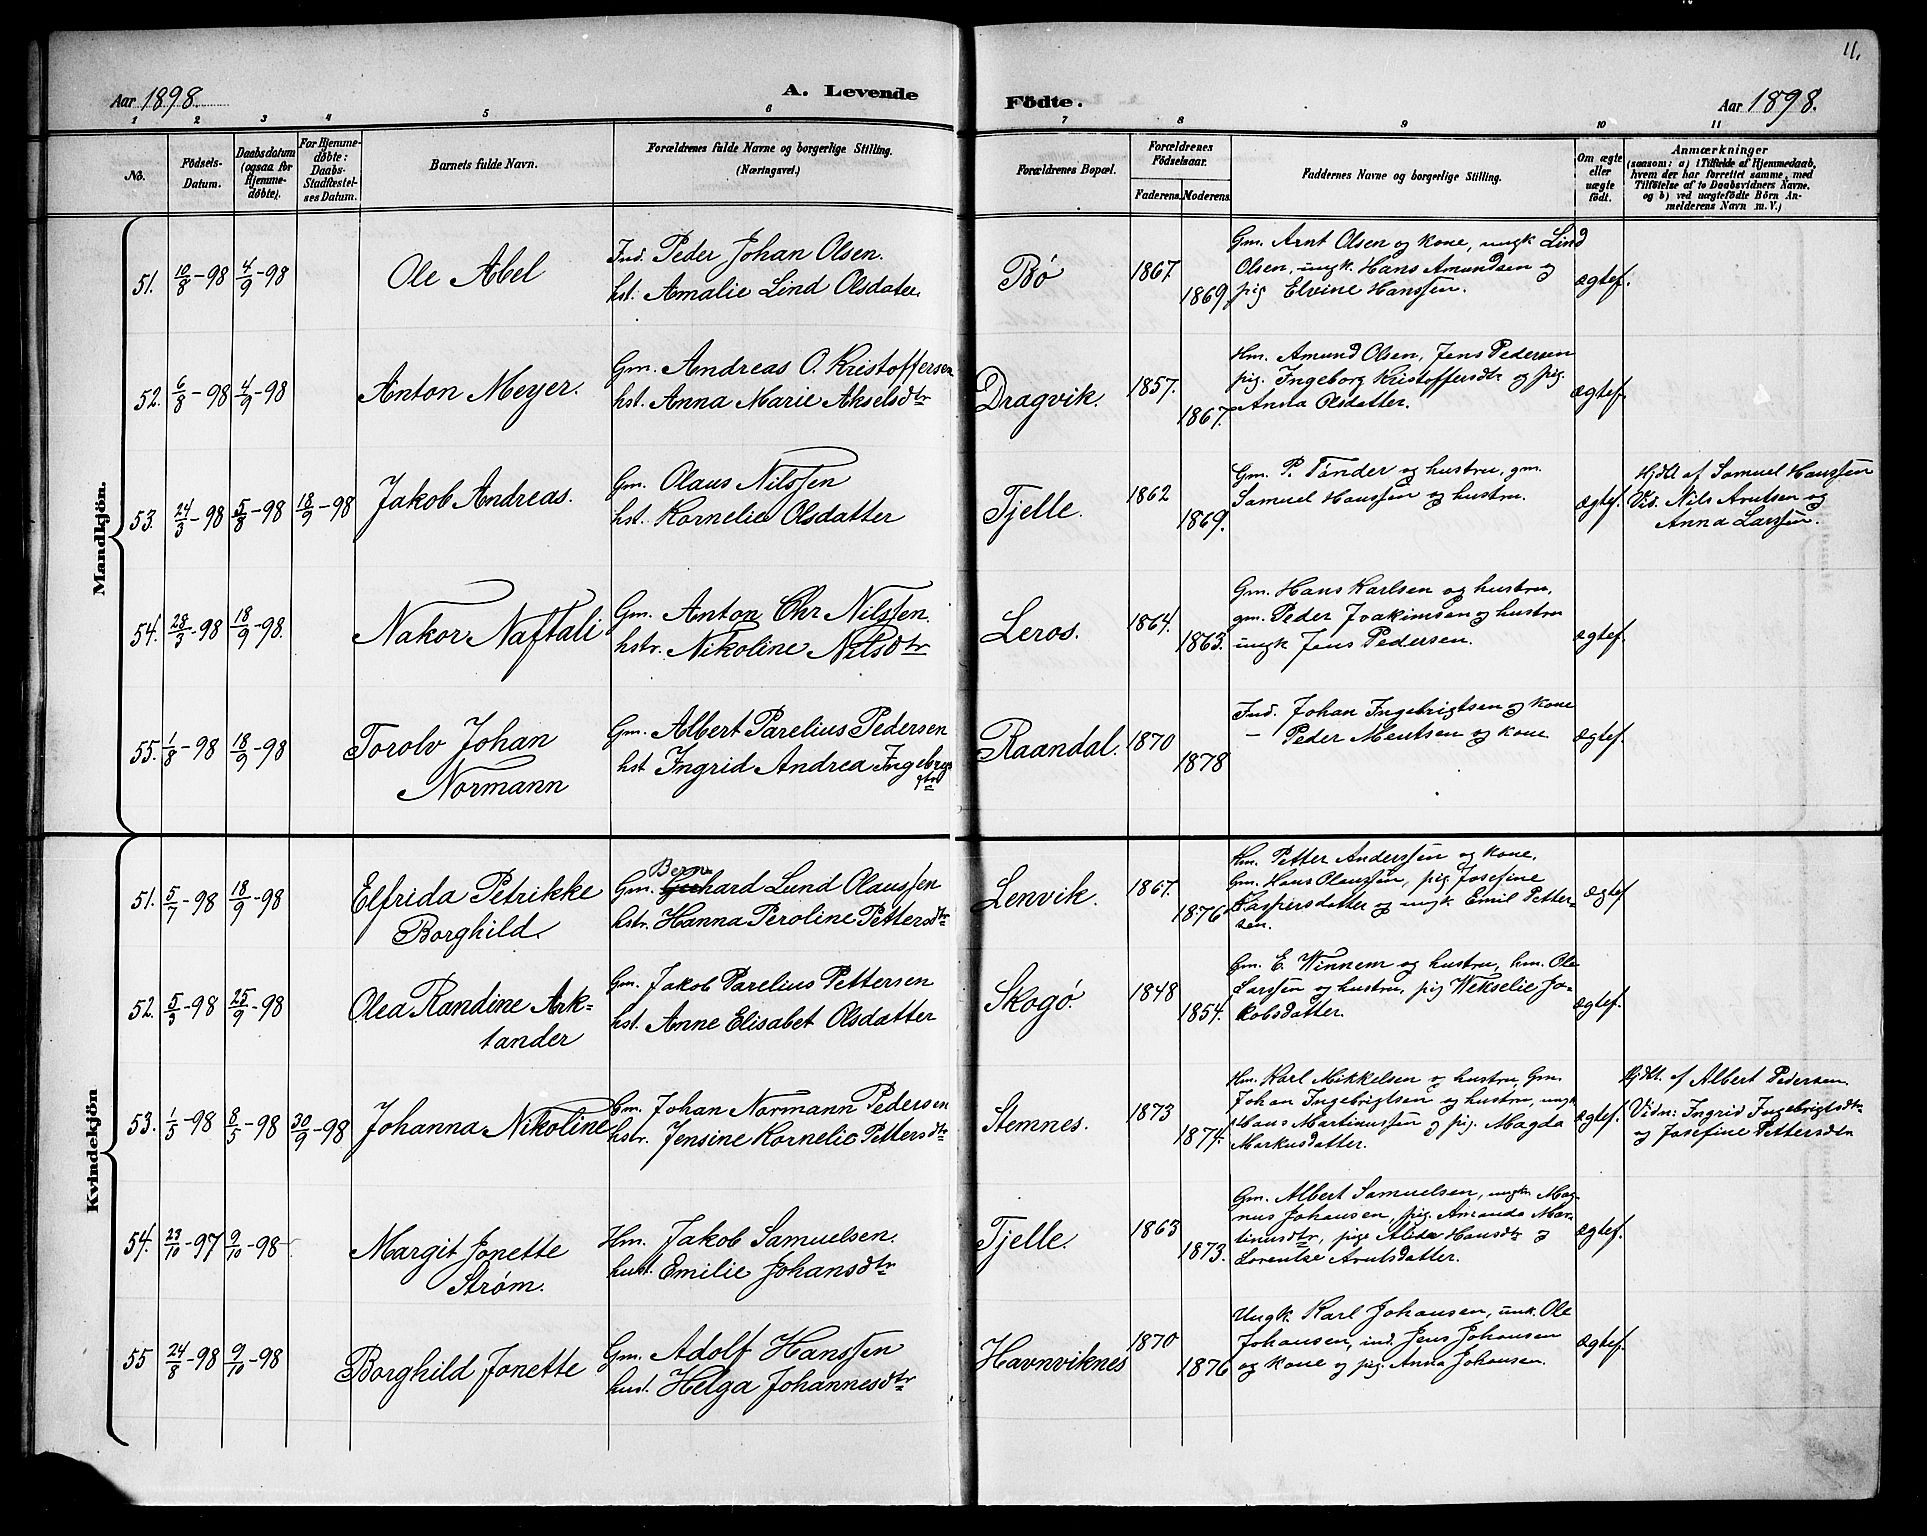 11.
Aar 1898.
A. Levende
Födte.
Aar 1898.
1 2 3 4 5 6 7 8 9 10 11
No.
Födsels-
Datum.
Daabsdatum
(ogsaa for
Hjemme-
döbte).
For Hjemme-
døbte:
Daabs-
Stadfæstel-
ses Datum.
Barnets fulde Navn.
Forældrenes fulde Navne og borgerlige Stilling.
(Næringsvei.)
Forældrenes Bopæl.
Forældrenes
Födselsaar.
Faderens.
Moderens.
Faddernes Navne og borgerlige Stilling.
Om ægte
eller
uægte
födt.
Anmærkninger
(saasom: a) i Tilfælde af Hjemmedaab,
hvem der har forrettet samme, med
Tilføielse af to Daabsvidners Navne.
og b) ved uægtefödte Börn An-
melderens Navn m. V.)
Mandkjön.
51. 10/8-98 4/9-98
Ole Abel
Ind. Peder Johan Olsen.
hst. Amalie Lind Olsdater.
Bø
1867.
1869
Gm. Arnt Olsen og kone, ungk Lind
Olsen, ungk. Hans Amundsen og
pig Elvine Hanssen.
ægtef.
52. 6/8-98 4/9-98
Anton Meyer.
Gm. Andreas O. Kristoffersen
hst. Anna Marie Akselsdtr
Dragvik.
1857.
1867.
Hm. Amund Olsen, Jens Pedersen
pig. Ingeborg Kristoffersdtr og pig.
Anna Olsdatter.
ægtef.
53. 24/3-98 5/8-98 18/9-98
Jakob Andreas.
Gm. Olaus Nilssen
hst. Kornelie Olsdatter
Tjelle.
1862
1869.
Gm. P. Tønder og hustru, gm.
Samuel Hanssen og hustru.
ægtef.
Hjdbt. af Samuel Hanssen
Vid. Nils Arntsen og
Anna Larssen.
54. 28/3-98 18/9-98.
Nakor Naftali
Gm. Anton Chr Nilssen.
hstr. Nikoline Nilsdtr
Leros.
1864.
1863.
Gm. Hans Karlsen og hustru,
gm. Peder Joakimsen og hustru
ungk Jens Pedersen.
ægtef.
55. 1/8-98 18/9-98
Torolv Johan
Normann
Gm. Albert Parelius Pedersen
hst Ingrid Andrea Ingebrigts
dtr
Raandal.
1870
1878
Ind. Johan Ingebrigtsen og kone
— Peder Mentsen og kone
ægtef.
Kvindekjön
51. 5/7-98 18/9-98
Elfrida Petrikke
Borghild.
Bern
Gm. Gerhard Lund Olaussen
hstr. Hanna Peroline Pettersdtr
Lenvik.
1867.
1876
Hm. Petter Anderssen og kone,
Gm. Hans Olaussen, pig Josefine
Kaspersdatter og ungk Emil Petter-
sen.
ægtef
52. 5/3-98 25/9-98
Olea Randine Ark-
tander
Gm. Jakob Parelius Pettersen
hst. Anne Elisabet Olsdatter
Skogø.
1848
1854.
Gm. E. Winnem og hustru, hm. Ole
Larssen og hustru, pig Wekselie Ja-
kobsdatter.
ægtef.
53. 1/5-98 8/5-98 30/9-98
Johanna Nikoline
Gm. Johan Normann Pedersen
hstr. Jensine Kornelie Pettersdtr
Stemnes.
1873
1874.
Hm. Karl Mikkelsen og hustru, Gm.
Johan Ingebrigtsen og hustru, ungk
Hans Martinussen og pig. Magda
Markusdatter.
ægtef.
Hjdbt. af Albert Pedersen
Vidn: Ingrid Ingebrigtsdtr
og Josefine Pettersdtr
54. 23/10-97 9/10-98
Margit Jonette
Strøm.
Hm. Jakob Samuelsen.
hust. Emilie Johansdtr
Tjelle.
1863
1873.
Gm. Albert Samuelsen, ungkr Mag-
nus Johansen, pig. Amanda Mar-
tinusdtr, pige Alida Hansdtr og
Lorentse Arntsdatter.
ægtef.
55 24/8-98 9/10-98
Borghild Jonette
Gm. Adolf Hanssen
hust. Helga Johannesdtr
Havnviknes
1870
1876
Ungk. Karl Johansen, unk. Ole
Johansen, ind. Jens Johansen
og kone og pig. Anna Johansen.
ægtef.